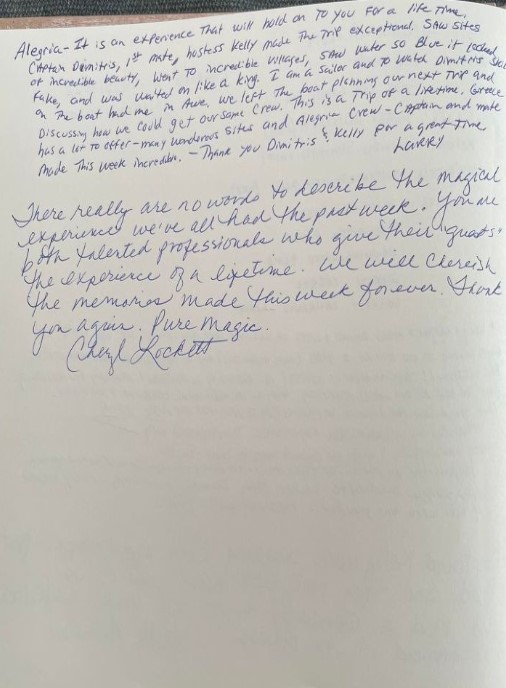 Alegria - It is an experience That will hold on To you For a life Time.
Captain Dimitris, 1st mate, hostess Kelly made The Trip exceptional. Saw sites
of incredible beauty, went To incredible villages, saw water so Blue it looked
fake, and was waited on like a king. I am a sailor and To watch Dimitris
on The boat had me in Awe, we left The boat planning our next Trip and
Discussing how we could get our same Crew. This is a Trip of a lifetime. Greece
has a lot To offer - many wonderous sites and Alegria Crew - Captain and mate
made This week incredible. - Thank you Dimitris & Kelly for a great Time
Larry
There really are no words to describe the magical
experience we've all had the past week. You are
both talented professionals who give their "guests"
the experience of a lifetime. We will chereish
the memories made this week forever. Thank
you again. Pure Magic.
Cheryl Lockett